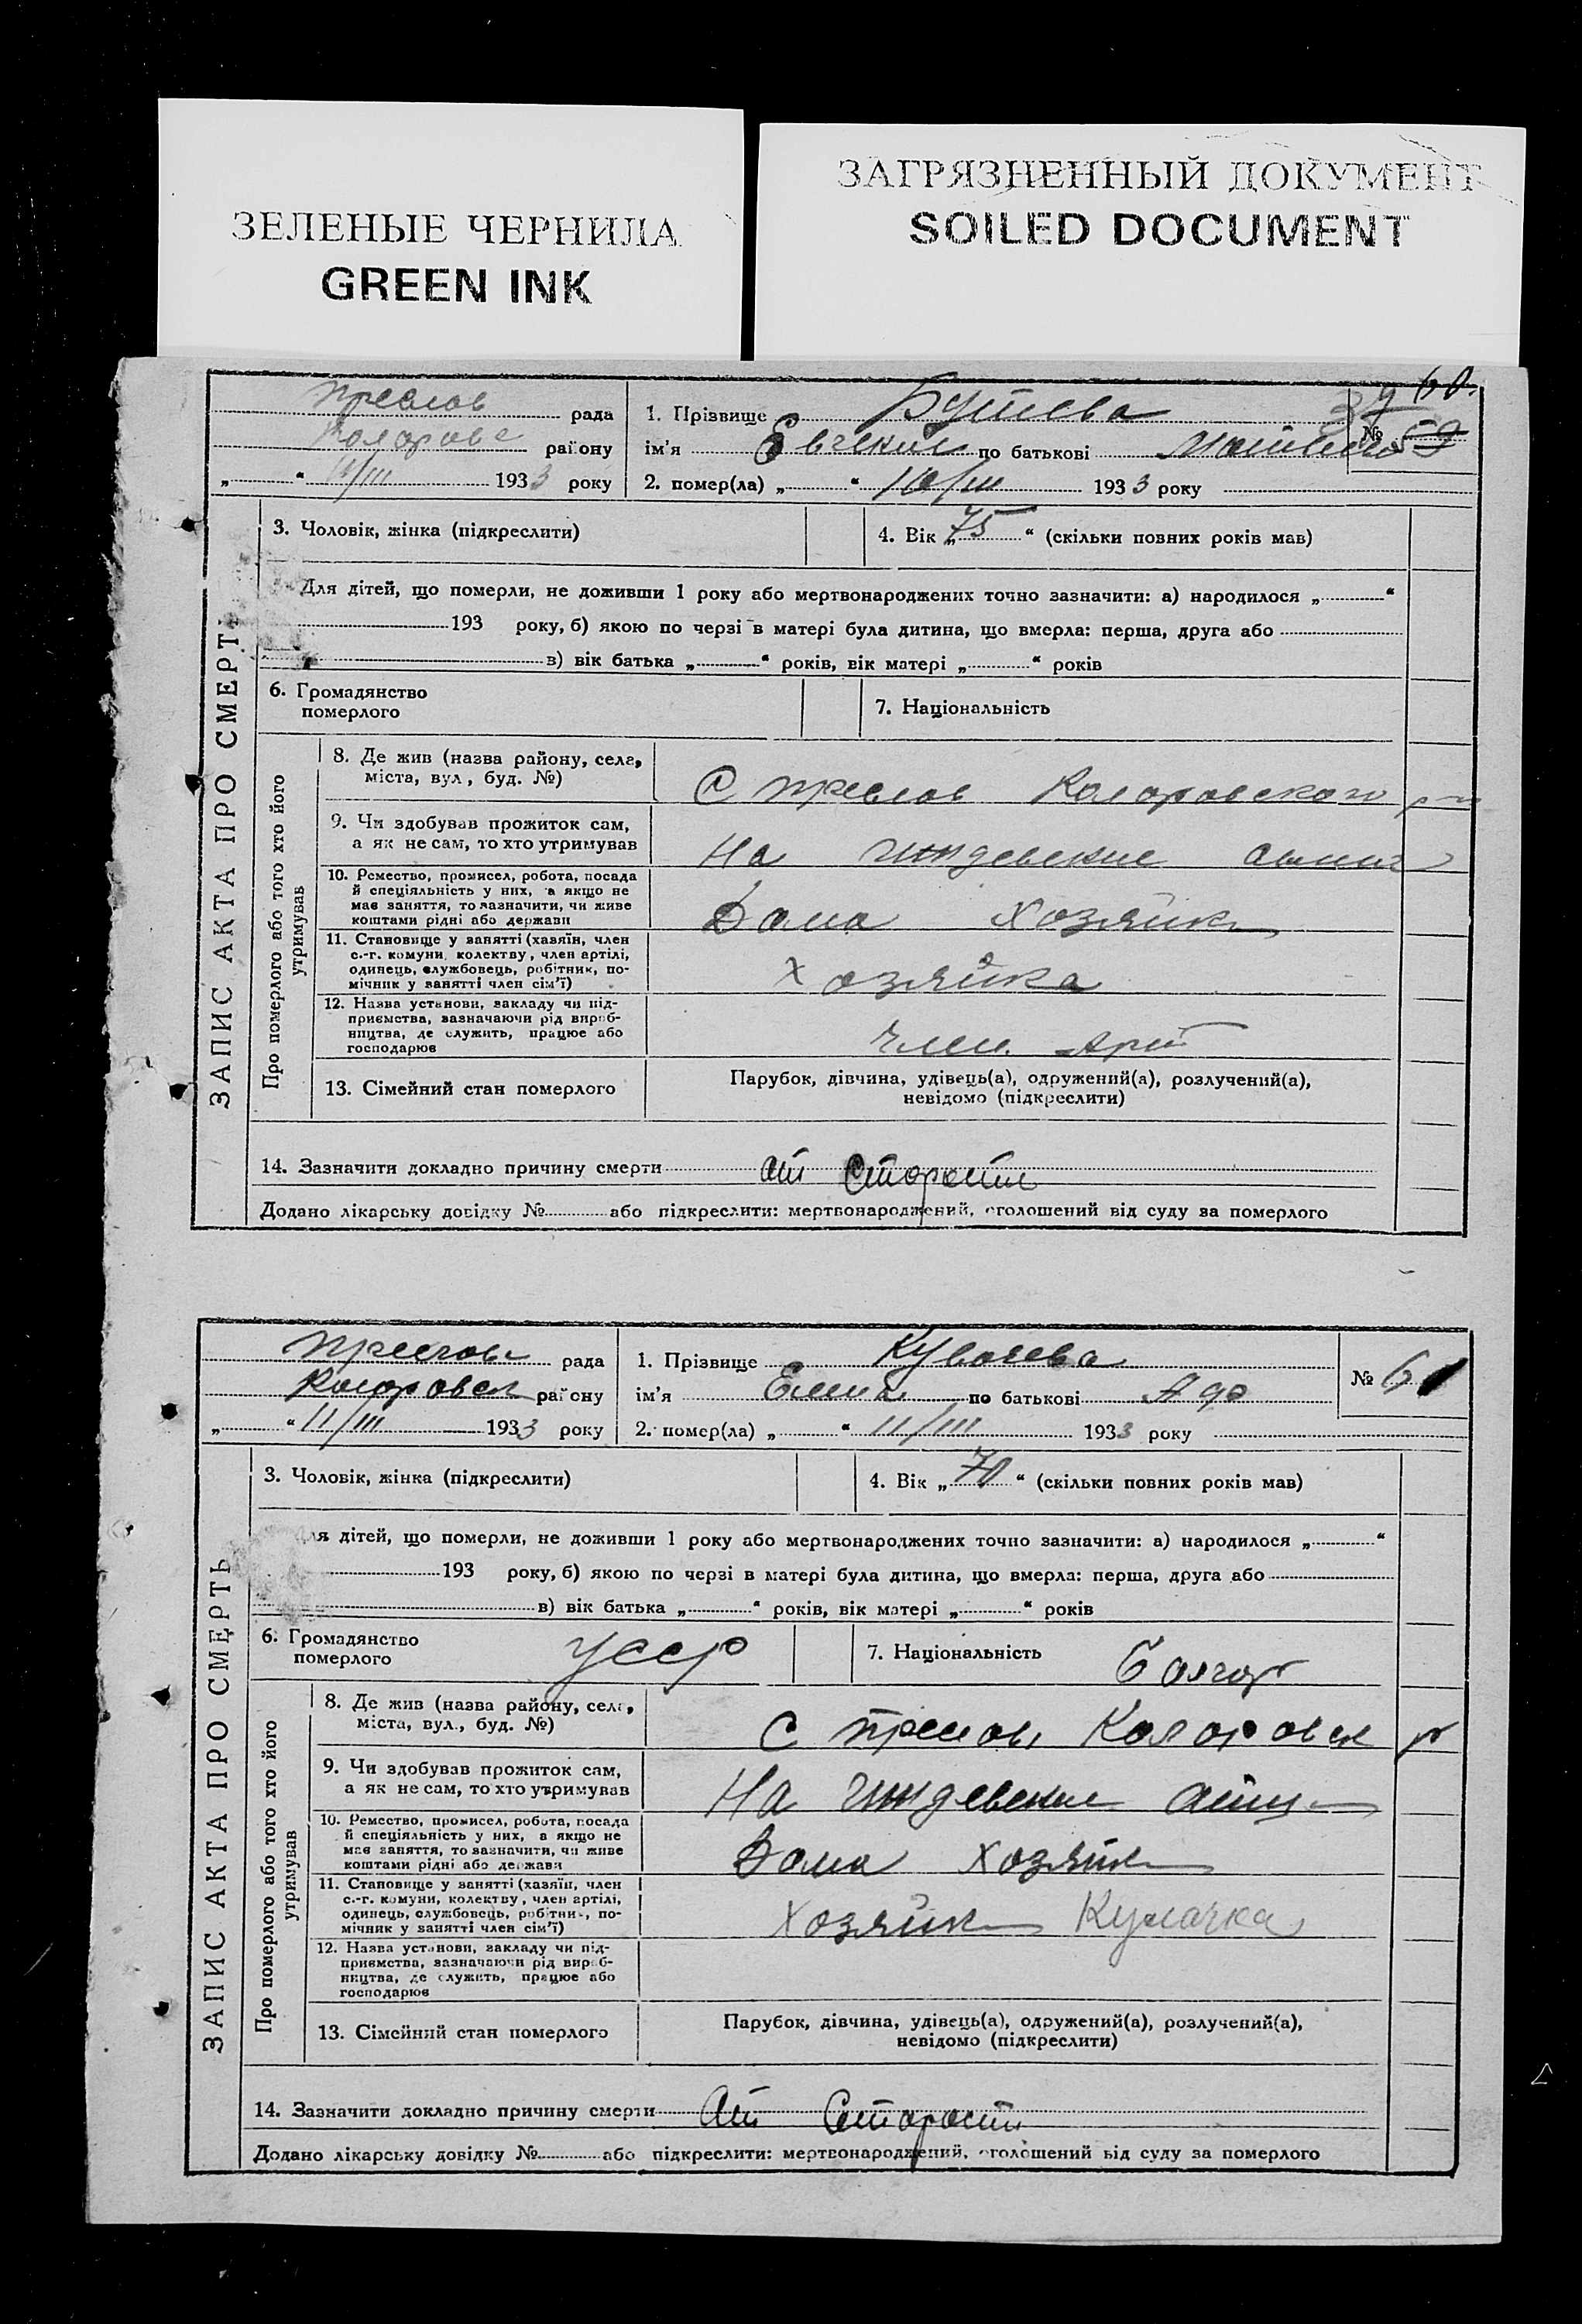 ЗЕЛЕНЫЕ ЧЕРНИЛА
GREEN INK
ЗАГРЯЗНЕННЫЙ ДОКУМЕНТ
SOILED DOCUMENT
ЗАПИС АКТА ПРО СМЕРТЬ
Преслав рада
району
„ “ 11/III 1933 року
1. Прізвище
60.
№ 59
ім'я по батькові
2. помер(ла) „ “ 10/III 1933 року
3. Чоловік, жінка (підкреслити)
4. Вік „ 75 “ (скільки повних років мав)
Для дітей, що померли, не доживши 1 року або мертвонароджених точно зазначити: а) народилося „ “
193 року, б) якою по черзі в матері була дитина, що вмерла: перша, друга або
в) вік батька „ “ років, вік матері „ “ років
6. Громадянство
померлого
7. Національність
Про померлого або того хто його
утримував
8. Де жив (назва району, села,
міста, вул., буд. №)
С Преслав Коларовского р-н
9. Чи здобував прожиток сам,
а як не сам, то хто утримував
На иждевение
10. Ремество, промисел, робота, посада
й спеціяльність у них, а якщо не
має заняття, то зазначити, чи живе
коштами рідні або держави
Дома Хозяйка
11. Становище у занятті (хазяїн, член
с.-г. комуни, колектву, член артілі,
одинець, службовець, робітник, по-
мічник у занятті член сім'ї)
Хозяйка
12. Назва установи, закладу чи під-
приємства, зазначаючи рід вироб-
ництва, де служить, працює або
господарює
Член. Арт
13. Сімейний стан померлого
Парубок, дівчина, удівець(а), одружений(а), розлучений(а),
невідомо (підкреслити)
14. Зазначити докладно причину смерти от Старости
Додано лікарську довідку № або підкреслити: мертвонароджений, оголошений від суду за померлого
ЗАПИС АКТА ПРО СМЕРТЬ
Преслав рада
Коларовск району
„ “ 11/III 1933 року
1. Прізвище
№ 61
ім'я по батькові
2. помер(ла) „ “ 11/III 1933 року
3. Чоловік, жінка (підкреслити)
4. Вік „ 70 “ (скільки повних років мав)
Для дітей, що померли, не доживши 1 року або мертвонароджених точно зазначити: а) народилося „ “
193 року, б) якою по черзі в матері була дитина, що вмерла: перша, друга або
в) вік батька „ “ років, вік матері „ “ років
6. Громадянство
померлого
УССР
7. Національність
болгар
Про померлого або того хто його
утримував
8. Де жив (назва району, села,
міста, вул., буд. №)
С Преслав Коларовск р
9. Чи здобував прожиток сам,
а як не сам, то хто утримував
На иждевение
10. Ремество, промисел, робота, посада
й спеціяльність у них, а якщо не
має заняття, то зазначити, чи живе
коштами рідні або держави
Дома Хозяйка
11. Становище у занятті (хазяїн, член
с.-г. комуни, колектву, член артілі,
одинець, службовець, робітник, по-
мічник у занятті член сім'ї)
Хозяйка Кулачка
12. Назва установи, закладу чи під-
приємства, зазначаючи рід вироб-
ництва, де служить, працює або
господарює
13. Сімейний стан померлого
Парубок, дівчина, удівець(а), одружений(а), розлучений(а),
невідомо (підкреслити)
14. Зазначити докладно причину смерти От Старости
Додано лікарську довідку № або підкреслити: мертвонароджений, оголошений від суду за померлого